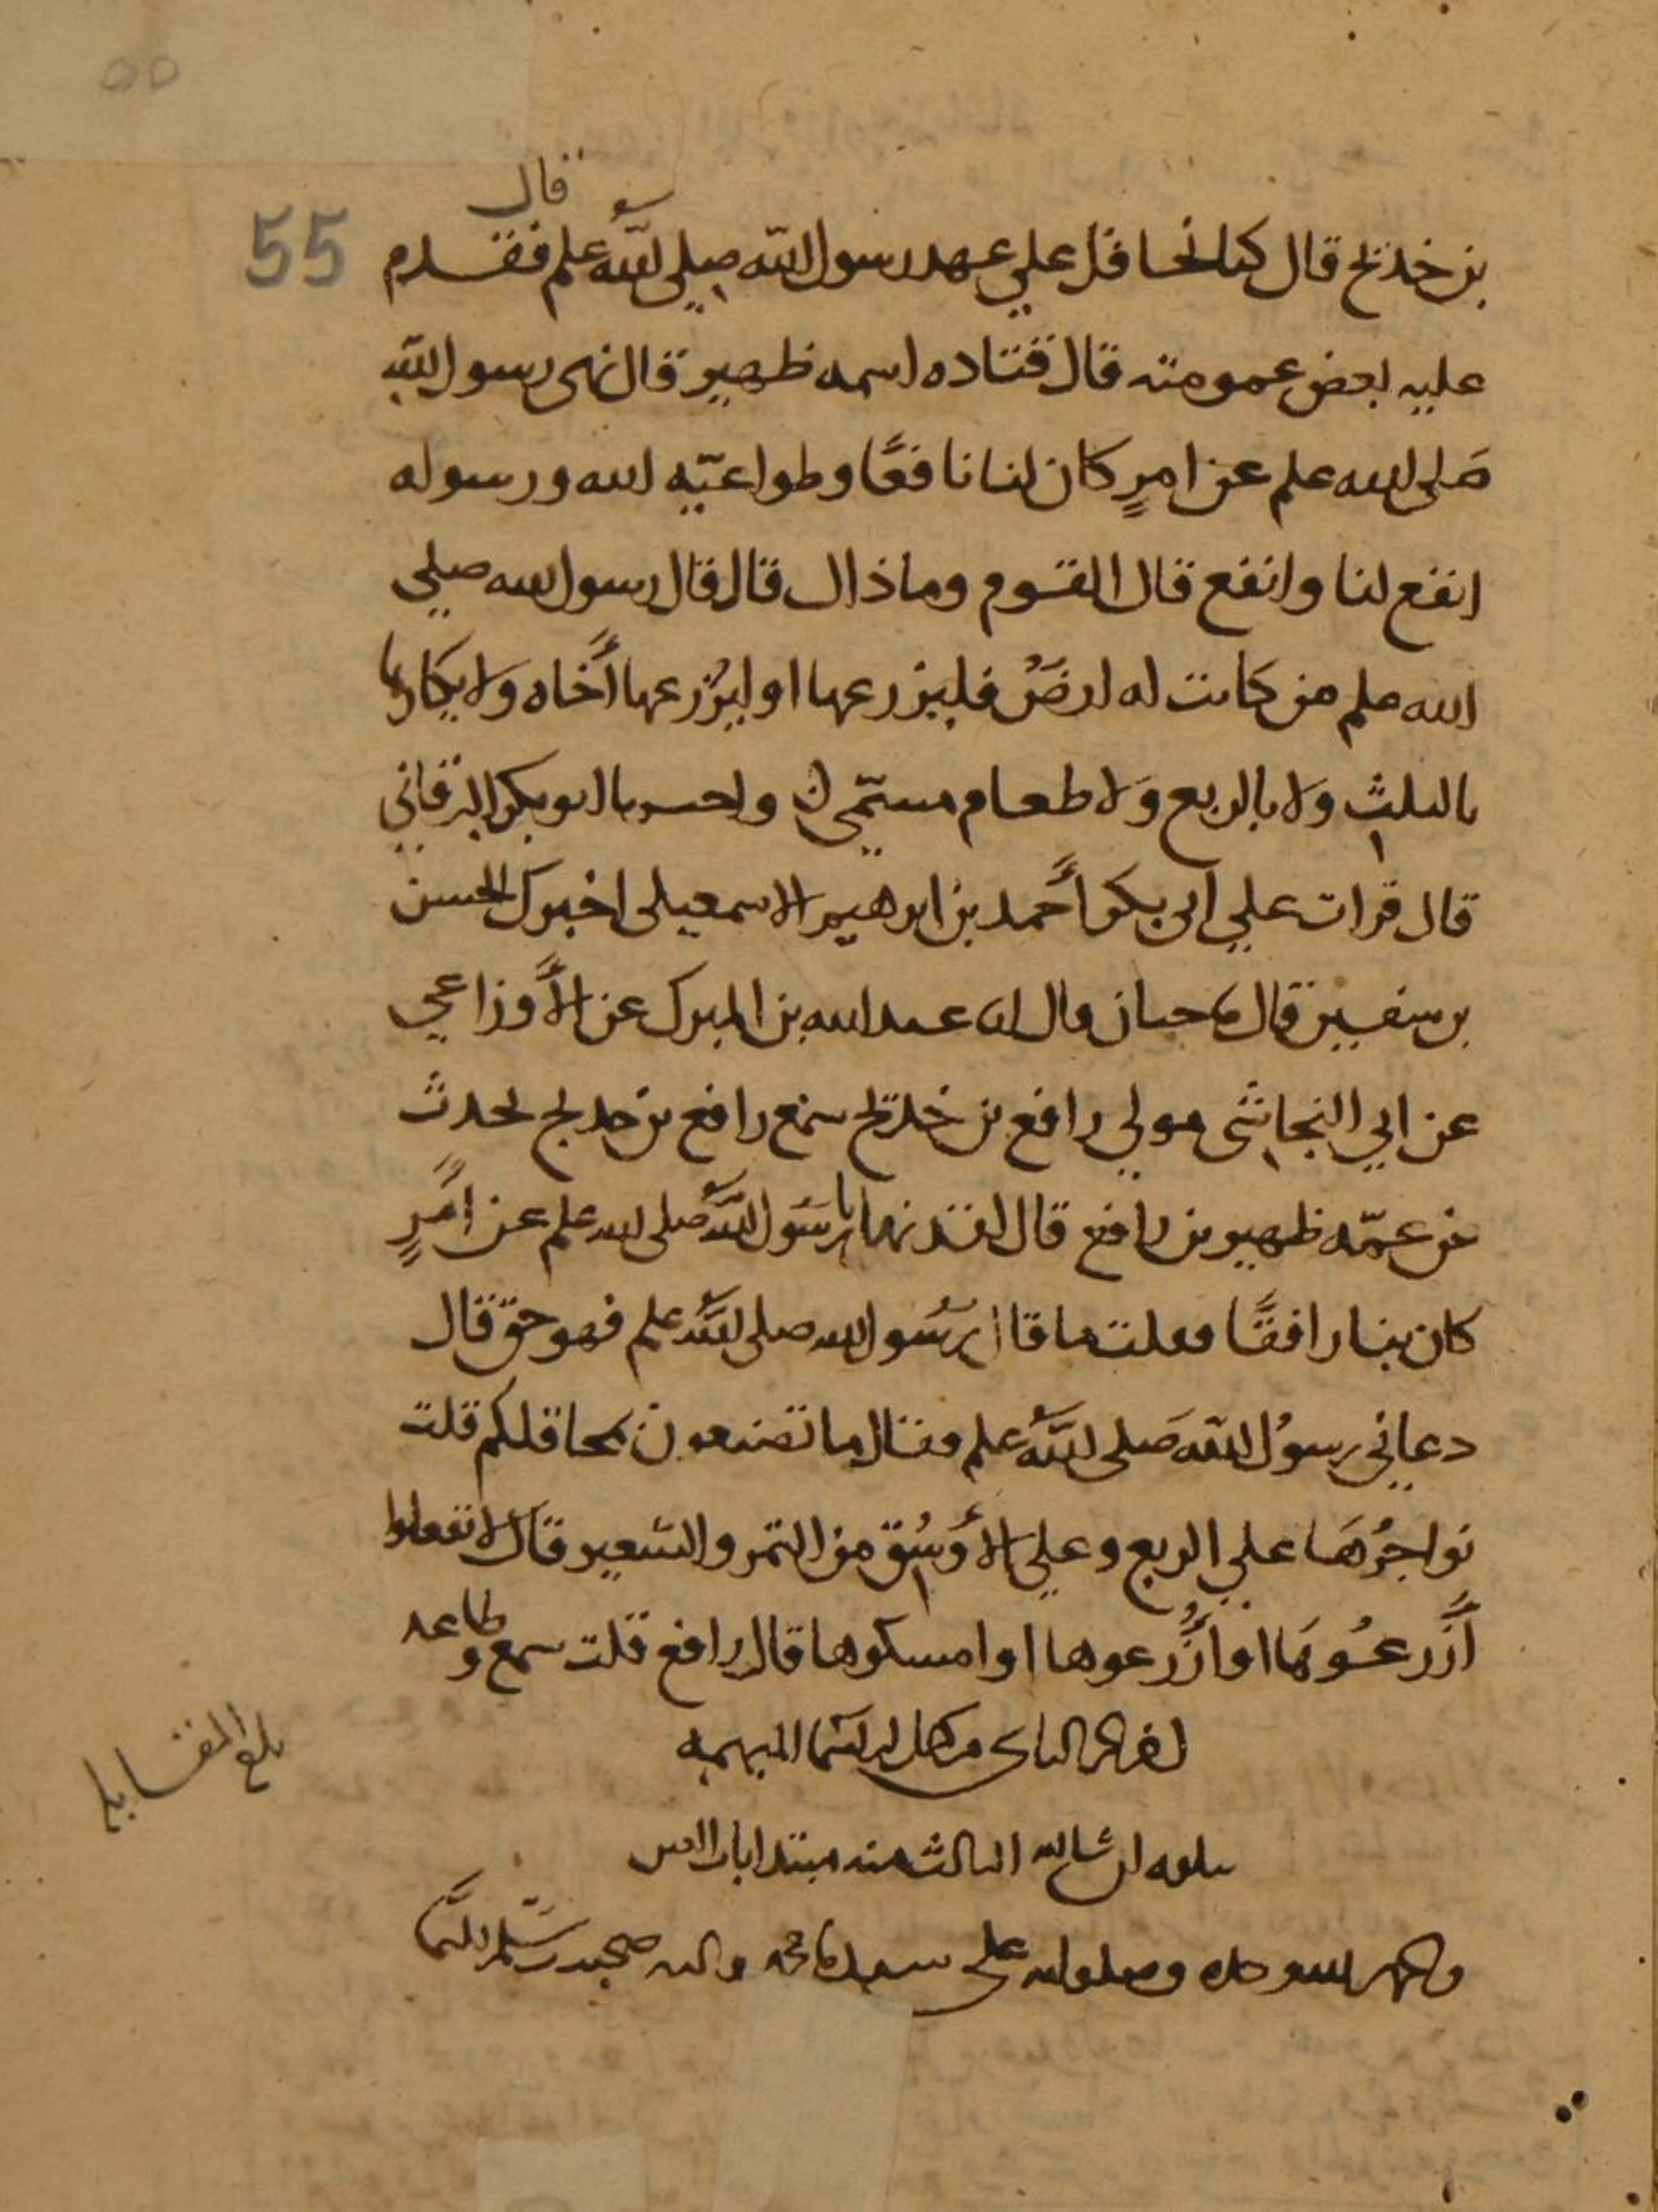 ٥٥
55
قال
بن خديج قال كنا نحاقل علي عهد رسول الله صلي الله علم فقدم
عليه بعض عمومته قال قتاده اسمه ظهير قال نهى رسول الله
صَلى الله علم عن امرٍ كان لنا نافعًا وطواعيّه الله ورسوله
انفع لنا وانفع قال القوم وما ذاك قال قال رسول الله صلي
الله علم من كانت له ارضٌ فليزرعها او ليُزرعها أخاه ولا يكاريها
بالثلث ولا بالربع ولا طعام مسمّي واخبرنا ابو بكر البرقاني
قال قرات علي ابي بكر أحمد بن ابرهيم الاسمعيلي اخبرك الحسن
بن سفين قال نا حبان قال انا عبد الله بن المبرك عن الأوزاعي
عن ابي النجاشي مولي رافع بن خديج سمع رافع بن خديج يحدث
عن عمّه ظهير بن رافع قال لقد نهانا رسول الله صلى الله علم عن امرٍ
كان بنا رافقًا فقلت ما قال رسُول الله صلى الله علم فهو حق قال
دعاني رسوُل الله صَلى الله علم فقال ما تصنعون بمحاقلكم قلت
نواجرُهَا علي الربع وعلي الأوسُق من التمر والشعير قال لا تفعلوا
أَزرعُوهَا او أزرعوها او امسكوها قال رافع قلت سمع وطاعه
اخر الجز الثاني من كتاب الاسما المبهمه
يتلوه ان شا الله الثالث منه مبتدا باب العين
والحمد لله وحده وصلواته علي سيدنا محمد واله وصحبه وسلم تسليما
بلغ المقابله